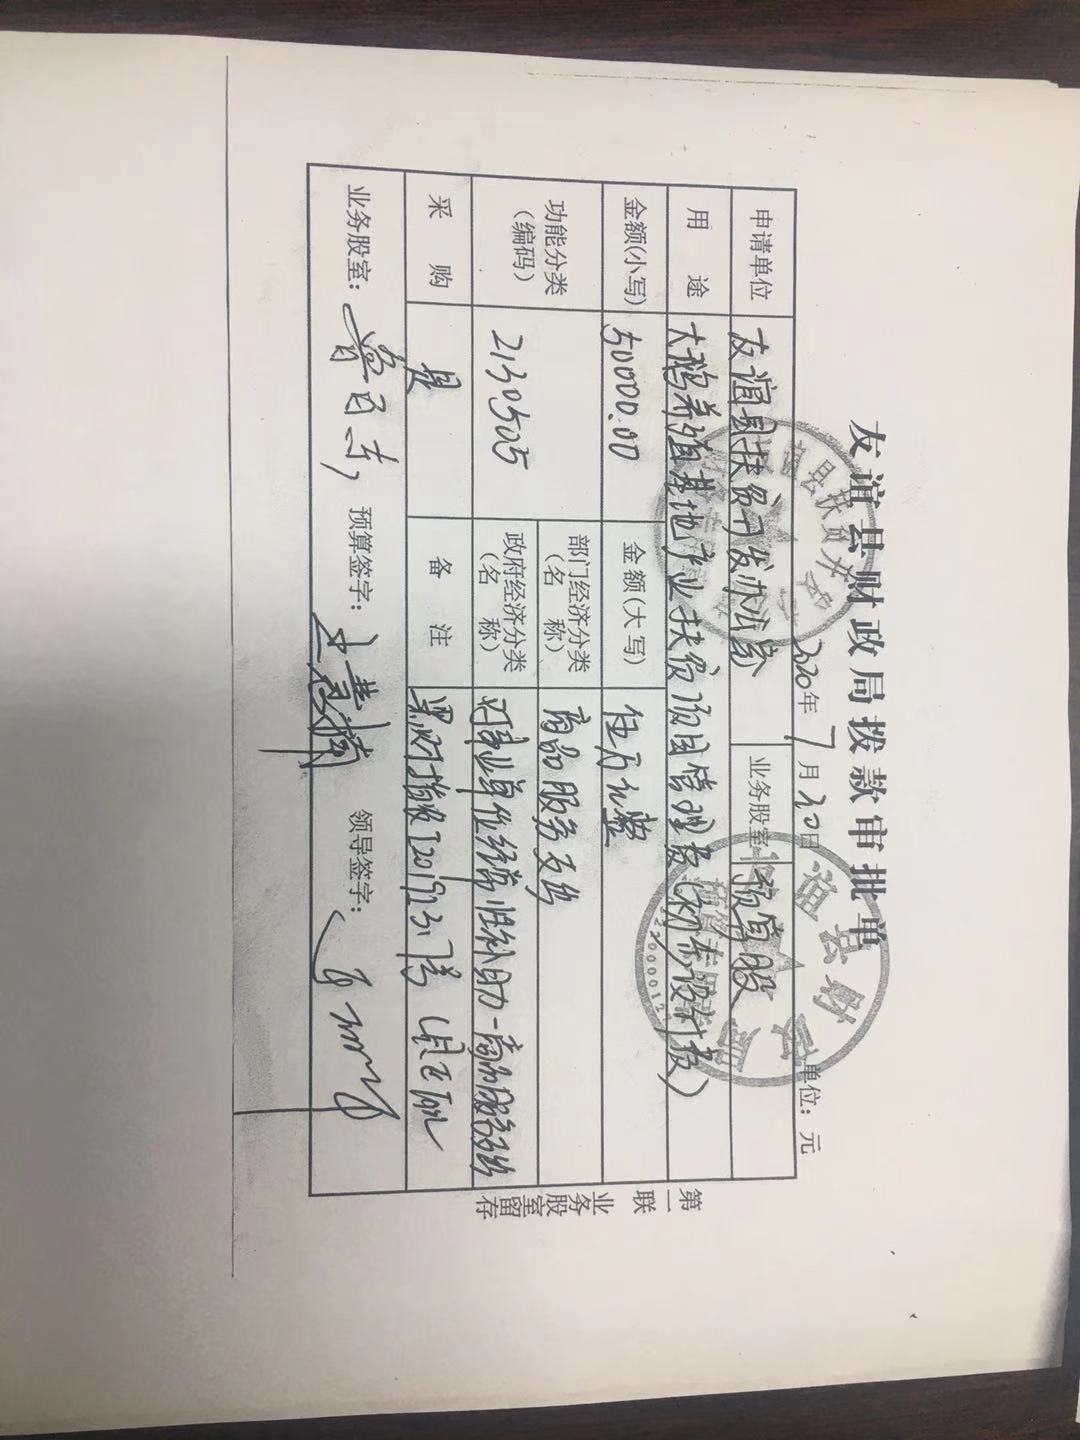 友谊县财政局拨款审批单
2020年 7月20日 单位：元
申请单位 友谊县扶贫开发办公室 业务股室 预算股
用途 大鹅养殖基地产业扶贫项目管理费（初步设计报）
金额(小写) 50000.00 金额(大写) 伍万元整
功能分类（编码） 2130505 部门经济分类（名称） 商品服务支出
政府经济分类（名称） 对事业单位经常性补助-商品服务支出
采购 是 备注 黑财指农[2019]23号
业务股室： 预算签字： 领导签字：
第一联 业务股室留存